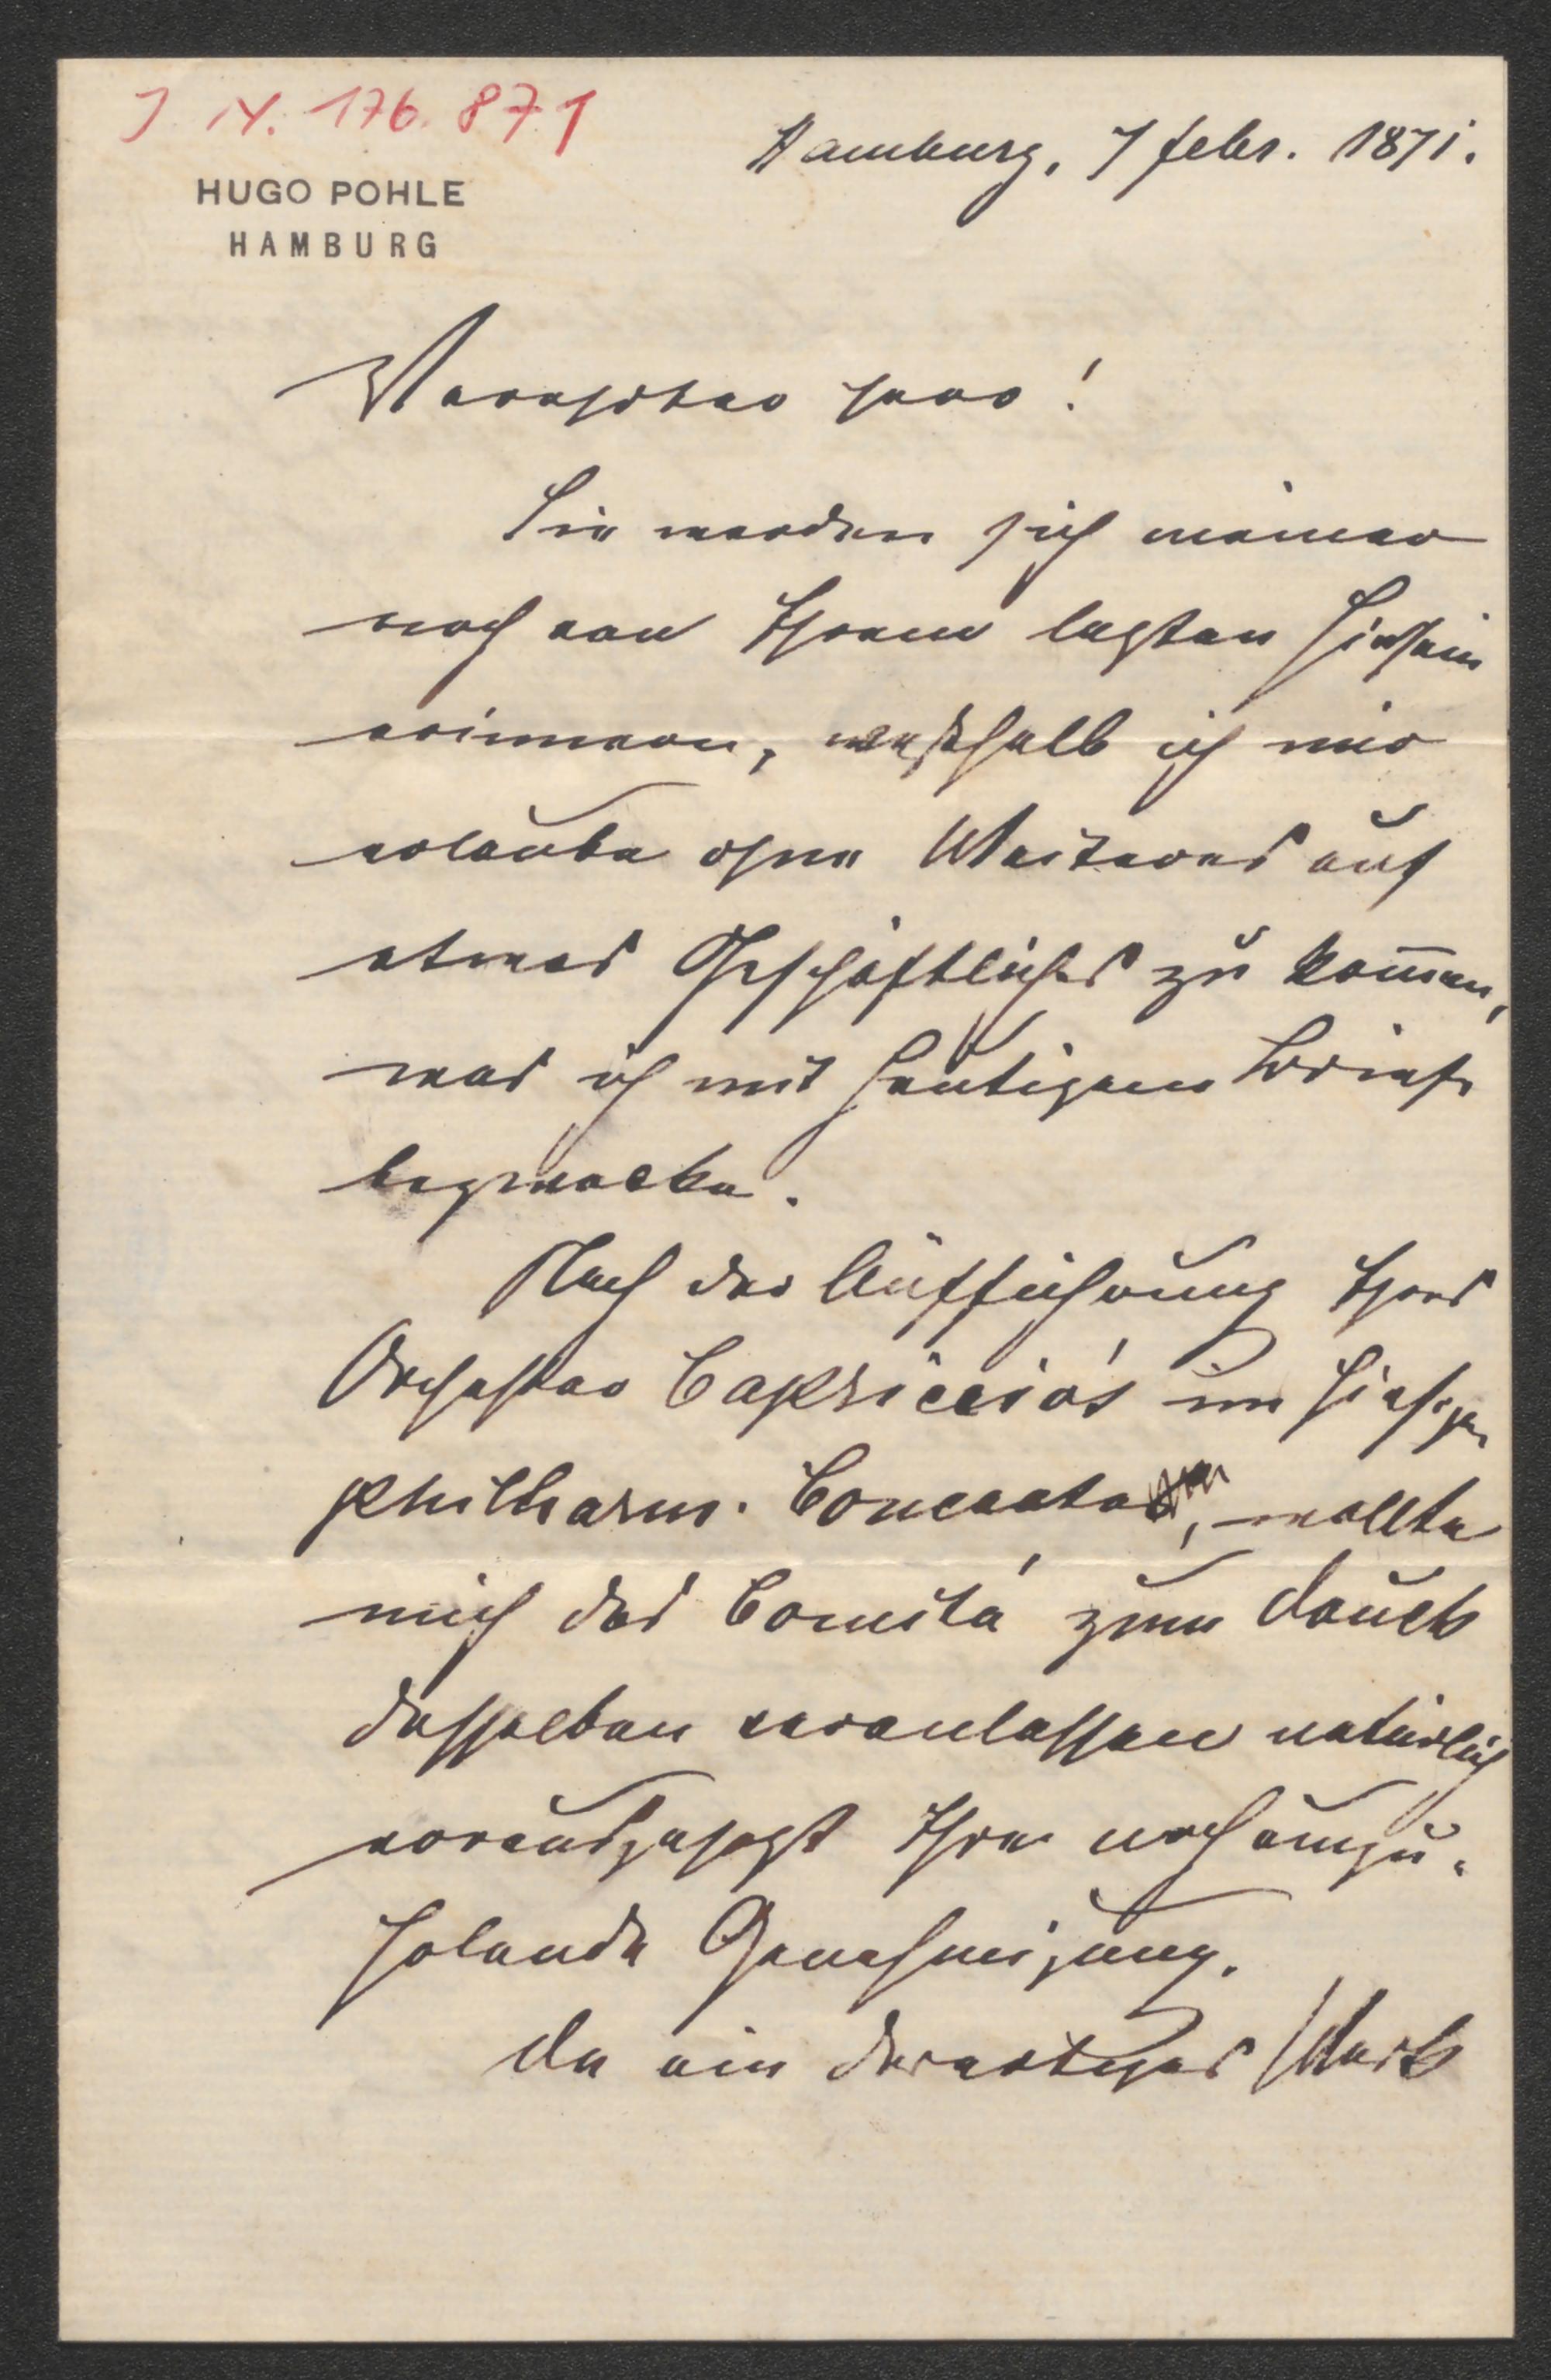 J. N. 176.871
Hamburg, 7 febr. 1871.
HUGO POHLE
HAMBURG
Verehrter Herr!
Sie werden sich meiner
noch von Ihrem letzten Hiersein
erinnern, weshalb ich mir
erlaube ohne Weiteres auf
etwas Geschäftliches zu kom̄en,
was ich mit heutigem Briefe
bezwecke.
Nach der Aufführung Ihres
Orchester Capriccio's im hiesigen
philharm. Concerte, wollte
mich das Comité zum Druck
desselben veranlassen natürlich
vorausgesetzt Ihre noch einzu-
holende Genehmigung.
Da ein derartiges Werk